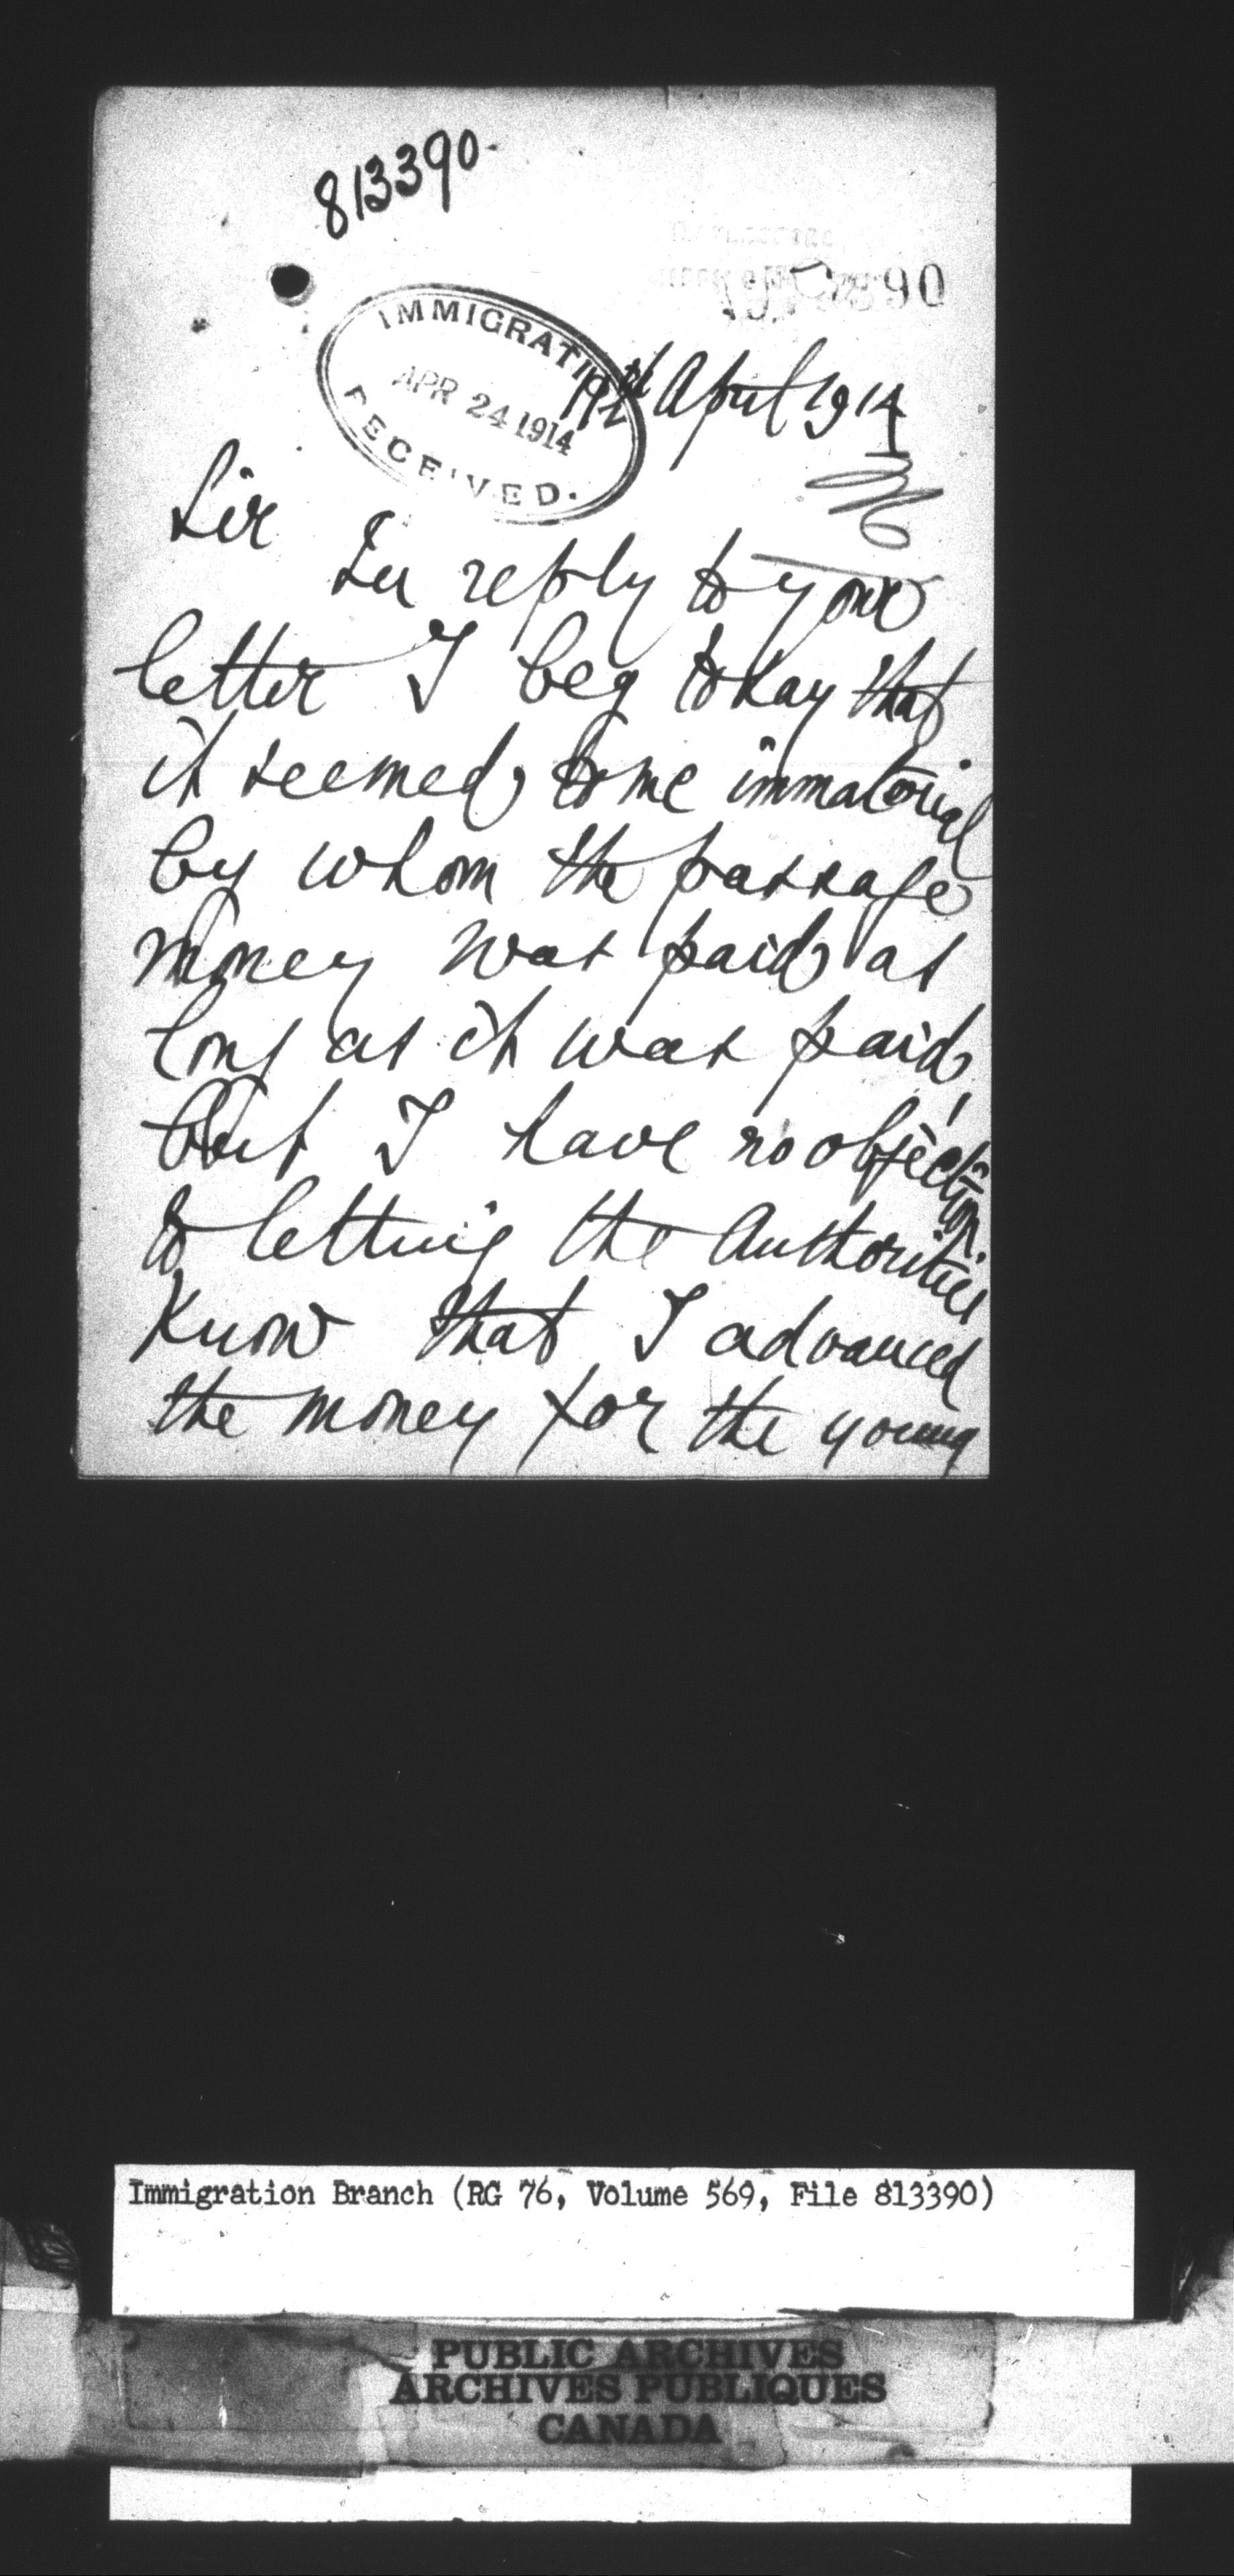 813390
90
IMMIGRATION
APR 24 1914
RECEIVED.
April 1914
Sir
In reply to your
letter I beg to say that
it seemed to me immatorial
by whom the passage
money was paid as
long as it was paid,
but I have no objection
to letting the Authorities
know that I advanced
the money for the young
Immigration Branch (RG 76, Volume 569, File 813390)
PUBLIC ARCHIVES
ARCHIVES PUBLIQUES
CANADA